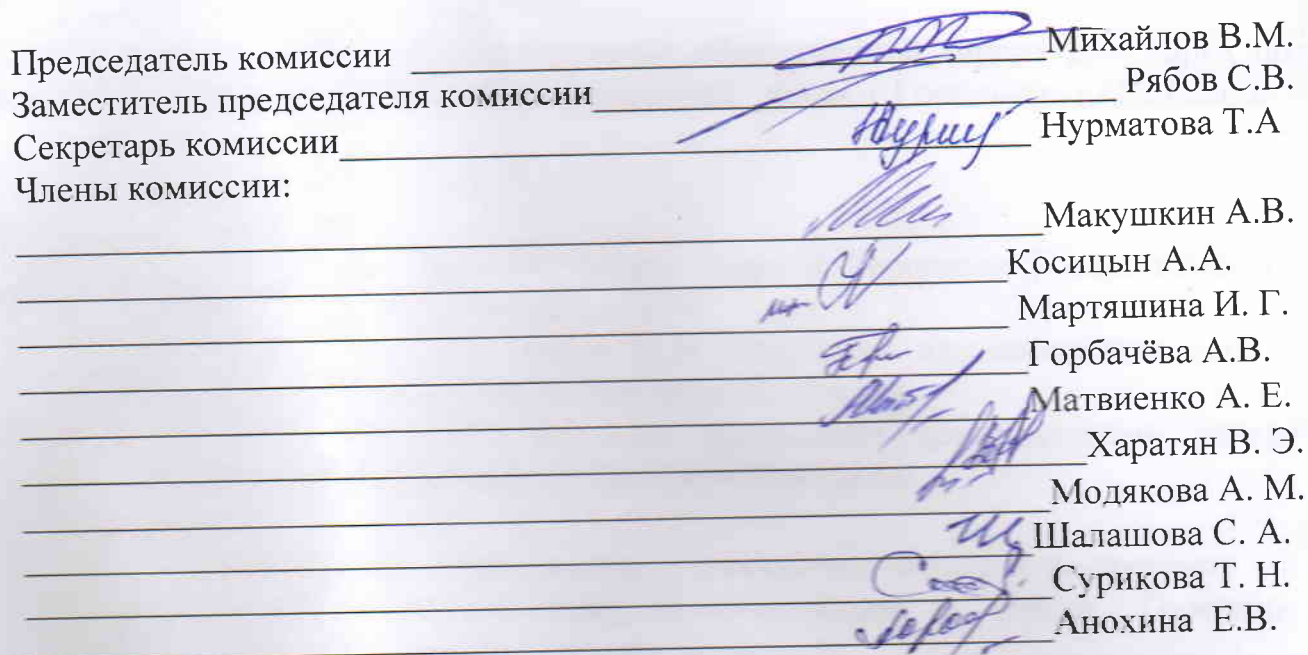 Председатель комиссии Михайлов В.М.
Заместитель председателя комиссии Рябов С.В.
Секретарь комиссии Нурматова Т.А
Члены комиссии:
Макушкин А.В.
Косицын А.А.
Мартяшина И. Г.
Горбачёва А.В.
Матвиенко А. Е.
Харатян В. Э.
Модякова А. М.
Шалашова С. А.
Сурикова Т. Н.
Анохина Е.В.